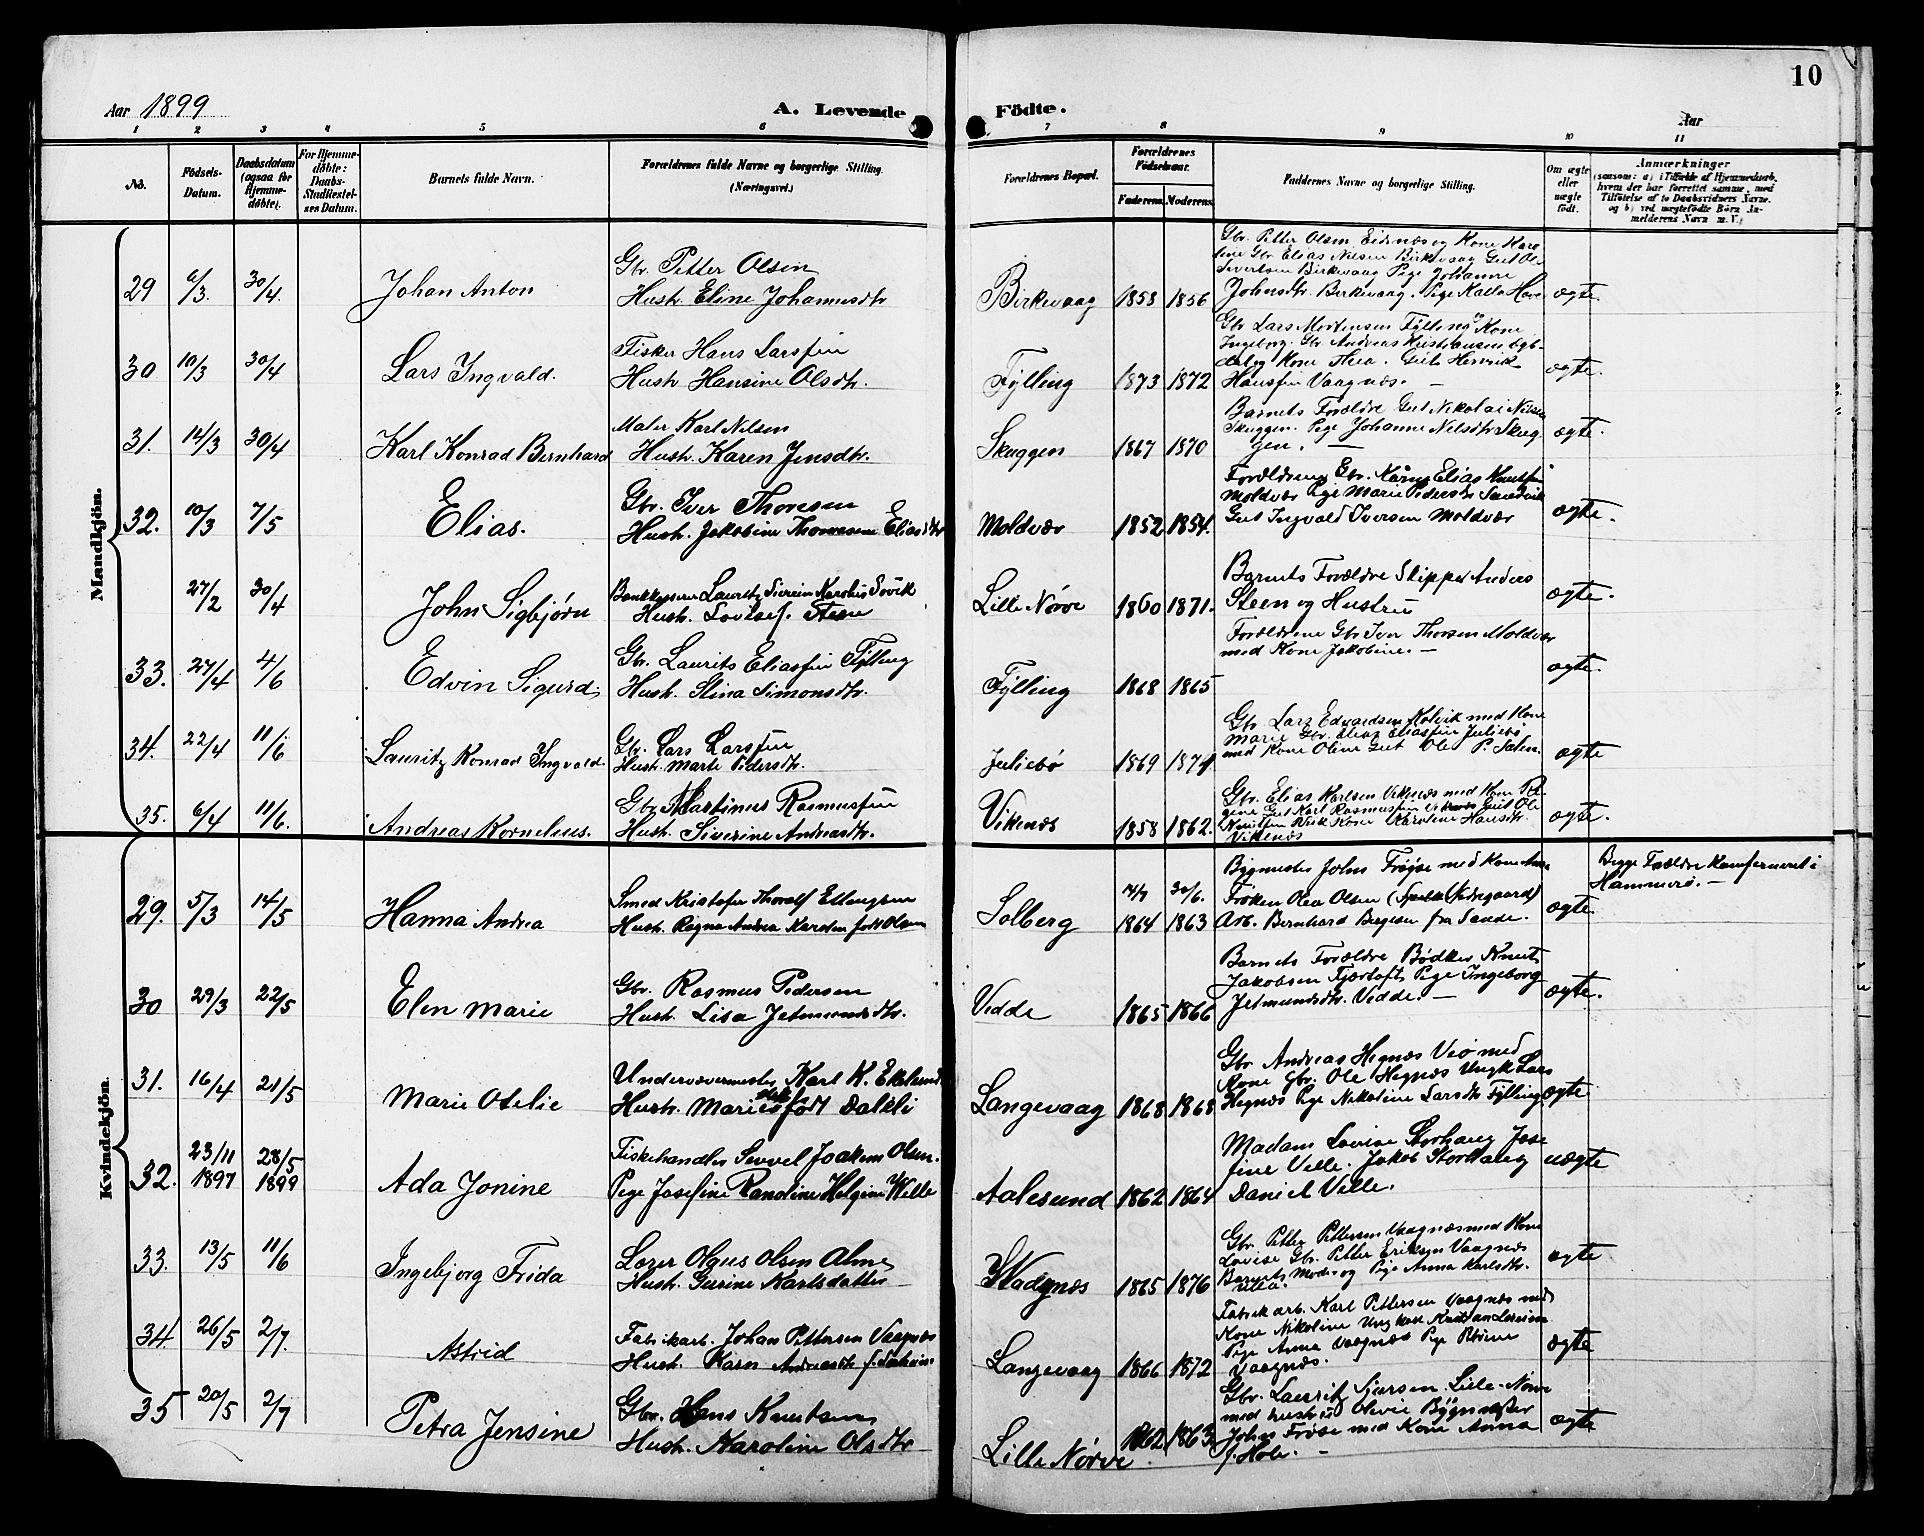 10
Aar 1899
A. Levende Födte.
Aar
1 2 3 4 5 6 7 8 9 10 11
No.
Födsels-Datum.
Daabsdatum (ogsaa for Hjemmedöbte).
For Hjemmedöbte: Daabs-Stadfæstelses Datum.
Barnets fulde Navn.
Forældrenes fulde Navne og borgerlige Stilling.
(Næringsvei.)
Forældrenes Bopæl.
Forældrenes Födselsaar.
Faderens. Moderens.
Faddernes Navne og borgerlige Stilling.
Om ægte eller uægte født.
Anmærkninger
(saasom: a) i Tilfælde af Hjemmedaab, hvem der har forrettet samme, med Tilføielse af to Daabsvidners Navne, og b) ved uægtefödte Börn Anmelderens Navn m. V.)
Mandkjön.
Gbr. Petter Olsen Eidsnæs og Kone Karo-
line Gbr Elias Nilsen Birkevaag Gut Ole
Sivertsen Birkevaag Pige Johanne
29 6/3. 30/4. Johan Anton Gbr. Petter Olsen
Hustr. Eline Johannesdtr Birkevaag 1858 1856 Johnsdtr. Birkevaag. Pige Kalla Hove ægte.
Gbr Lars Mortensen Fylling og Kone
Ingeborg. Gbr Andreas Kristiansen
dal og Kone Thea. Gut Henrik
30 10/3 30/4 Lars Ingvald. Fisker Hans Larssen
Hustr Hansine Olsdtr. Fylling 1873 1872 Hanssen Vaagnæs. — ægte.
Barnets Forældre Gut Nikolai Nilsen
31. 14/3 30/4 Karl Konrad Bernhard Maler Karl Nilsen
Hustr. Karen Jensdtr. Skuggen 1867 1870 Skuggen. Pige Johanne Nilsdtr Skug-
gen. — ægte.
Forældrene Gbr. Elias Knutsen
Moldvær Pige Marie Pedersdtr
32. 10/3 7/5 Elias. Gbr. Iver Thoresen
Hustr. Jakobine Eliasdtr Moldvær 1852 1854. Gut Ingvald Iversen Moldvær ægte.
27/2 30/4 John Sigbjørn Lauritz Karolus
Hustr. Lovise f. Steen Lille Nørve 1860 1871. Barnets Forældre Skipper Anders
Steen og Hustru ægte.
33. 27/4 4/6 Edvin Sigurd Gbr. Laurits Eliassen Fylling
Hustr. Stina Simonsdtr. Fylling 1868 1865 Forældrene Gbr Iver Thorsen Moldvær
med Kone Jakobine. — ægte.
34. 22/4 11/6 Lauritz Konrad Ingvald. Gbr. Lars Larssen
Hustr. Marte Pedersdtr. Juliebø 1869 1874 Gbr Lars Edvardsen Kolvik med Kone
Marie Gbr. Elias Eliassen Juliebø
med Kone Oline Gut Ole P. ægte
35. 6/4 11/6. Andreas Kornelius. Gbr. Martinus Rasmussen
Hustr. Siverine Andreasdtr. Vikenæs 1858 1862. Gbr. Elias Karlsen Vikenæs med Kone
Gut Karl Rasmussen Vikenæs Gut Ole
Knutsen Kone Karoline Hansdtr.
Vikenæs ægte.
Kvindekjön.
29. 5/3 14/5 Hanna Andrea Smed Kristofer Thoralf Ellingsen
Hustr. Ragna Andrea Karsten født Olsen Solberg 14/7 1864 30/6. 1863 Bygmester Johs Frøyse med Kone Anna
Frøken Olea Olsen
Arb. Bernhard Bergesen fra Sande. ægte. Begge Forældre konfirmeret i
Hammerø. —
30 29/3 22/5 Elen Marie Gbr. Rasmus Pedersen
Hustr. Lisa Jetmundsdtr. Vedde 1865 1866 Barnets Forældre Bødker Knut
Jakobsen Fjærtoft Pige Ingeborg
Jetmundsdtr. Vedde. — ægte.
31. 16/4 21/5 Marie Otelie Undervævermester Karl K. Ekelund
Hustr. Marie født Dalsli Langevaag 1868 1868 Gbr Andreas Hegnæs Veø med
Kone Gbr. Ole Hegnæs Ungk Lars
Hegnæs Pige Nikoline Larsdtr Fylling ægte
32. 23/11 1897 28/5 1899 Ada Jonine Fiskehandler Sevvel Joakim Olsen.
Pige Josefine Karoline Helgine Wille Aalesund 1862 1864 Madam Lovise Storhaug Jose-
fine Velle. Jakob Storhaug
Daniel Velle. uægte
33. 13/5 11/6 Ingebjorg Frida Lazer Olaus Olsen Alme
Hustr. Gurine Karlsdatter Vaagnæs 1865 1876 Gbr. Petter Pettersen Vaagnæs med Kone
Lovise Gbr. Petter Eriksen Vaagnæs
Barnets Moder og Pige Anna Karlsdtr. ægte
34. 26/5 2/7. Astrid Fabrikarb. Johan Pettersen Vaagnæs
Hustr. Karn Andreasdtr Langevaag 1866 1872 Fabrikarb. Karl Pettersen Vaagnæs med
Kone Nikoline Ungkarl Kristian Larsen
Pige Anna Vaagnæs Pige
Vaagnæs. ægte
35 20/5 2/7 Petra Jensine Gbr. Hans Knutsen
Hustr. Karoline Olsdtr Lille Nørve 1862 1863 Gbr. Laurits Sjursen Lille-Nørve
med hustru Olivie Bygmester
Johs Frøse med Kone Anna
f. Hole. — ægte